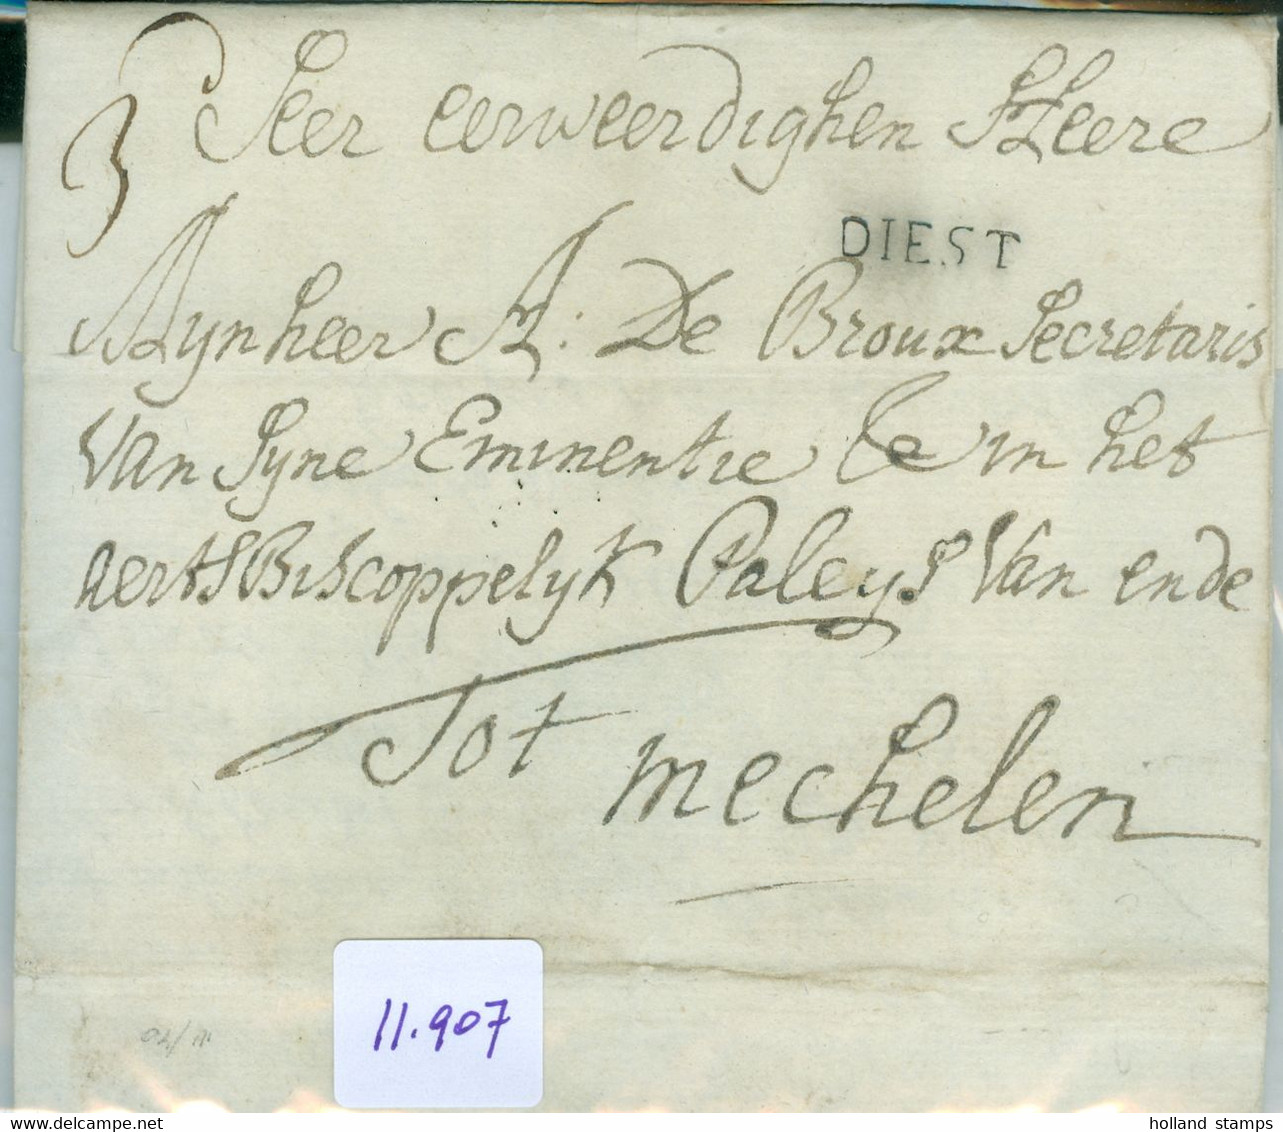 3 Seer eerweerdighen Heere
DIEST
Mynheer A: De Broux Secretaris
Van Syne Eminentie &c in het
aertsBiscoppelyk Paleys Van ende
Tot
mechelen
11.907
holland stamps